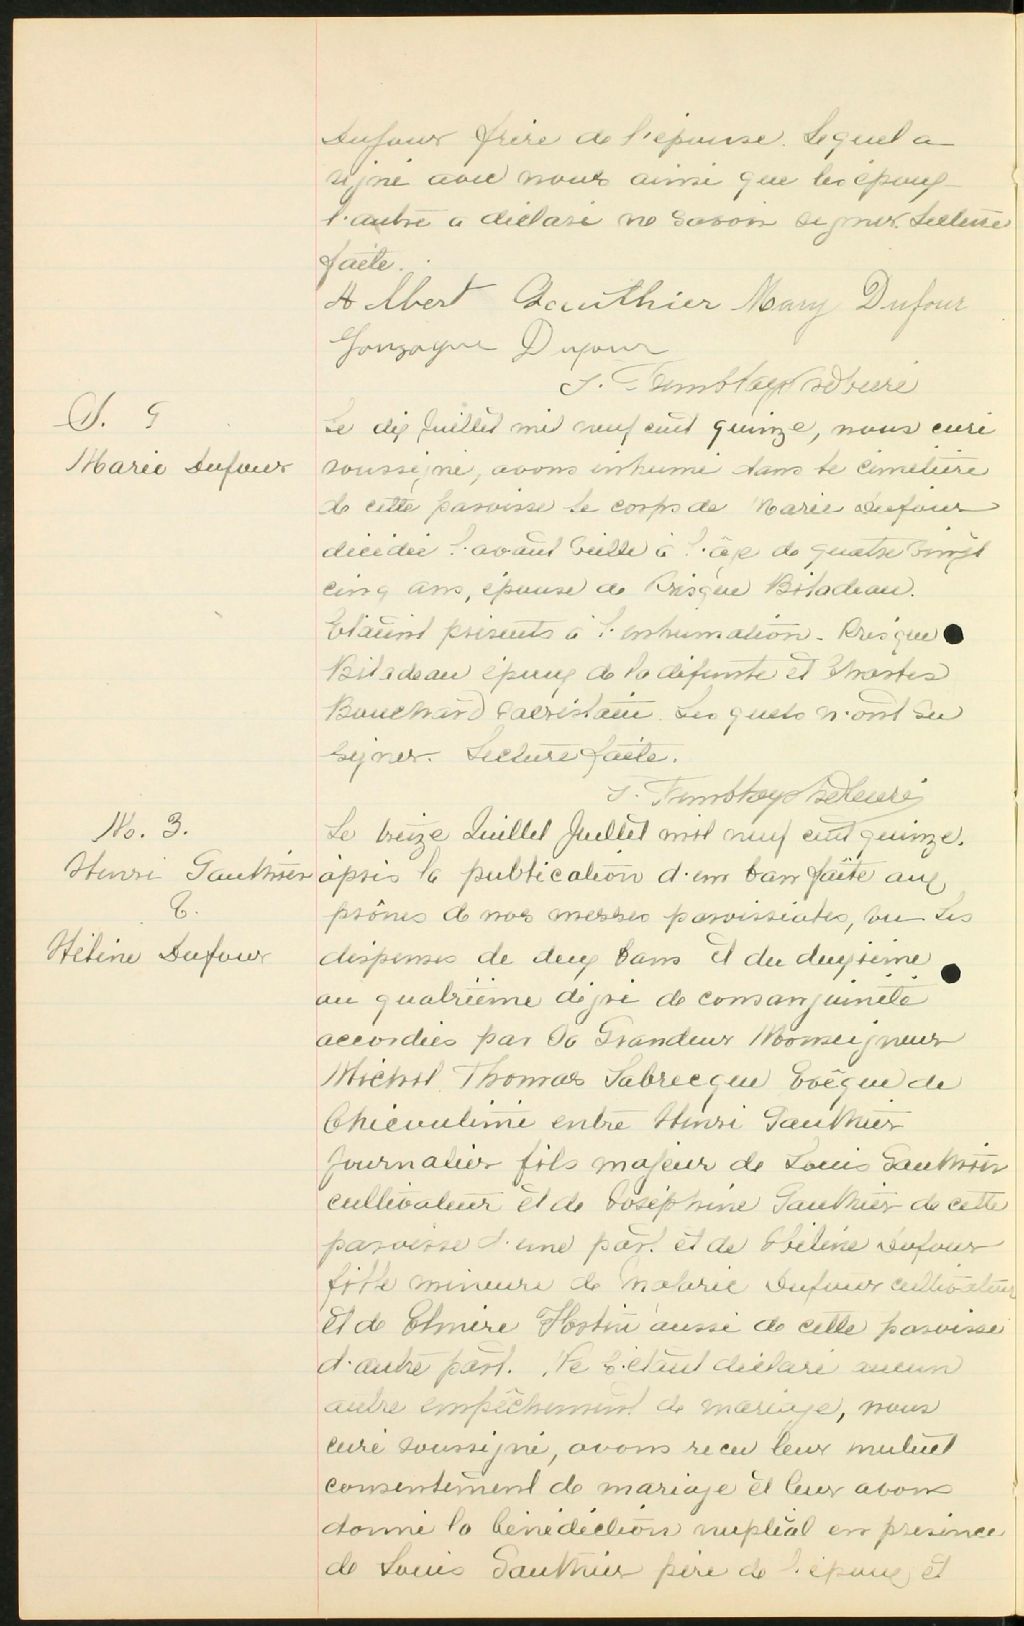 Dufour frère de l'épouse. Lequel a
signé avec nous ainsi que les époux
l'autre a déclaré ne savoir signer. Lecture
faite.
Albert Gauthier Mary Dufour
Gonzague Dufour
J. Tremblay Ptre Curé
S. 9
Marie Dufour
Le dix Juillet mil neuf cent quinze, nous curé
soussigné, avons inhumé dans le cimetière
de cette paroisse le corps de Marie Dufour
décédée l'avant veille à l'âge de quatre vingt
cinq ans, épouse de Prisque Bilodeau.
Etaient présents à l'inhumation. Prisque
Bilodeau époux de la défunte et Charles
Bouchard sacristain. Les quels n'ont su
signer. Lecture faite.
J. Tremblay Ptre Curé
No. 3.
Henri Gauthier
&.
Hélène Dufour
Le treize Juillet Juillet mil neuf cent quinze.
après la publication d'un ban faite aux
prônes de nos messes paroissiales, vu les
dispenses de deux bans et du deuxième
au quatrième dégré de consanguinité
accordées par Sa Grandeur Monseigneur
Michel Thomas Labrecque Evêque de
Chicoutimi entre Henri Gauthier
journalier fils majeur de Louis Gauthier
cultivateur et de Joséphine Gauthier de cette
paroisse d'une part. et de Hélène Dufour
fille mineure de Malorie Dufour cultivateur
et de Elmire aussi de cette paroisse
d'autre part. Ne s'étant déclaré aucun
autre empêchement de mariage, nous
curé soussigné, avons recu leur mutuel
consentement de mariage et leur avons
donné la bénédiction nuptial en présence
de Louis Gauthier père de l'époux et